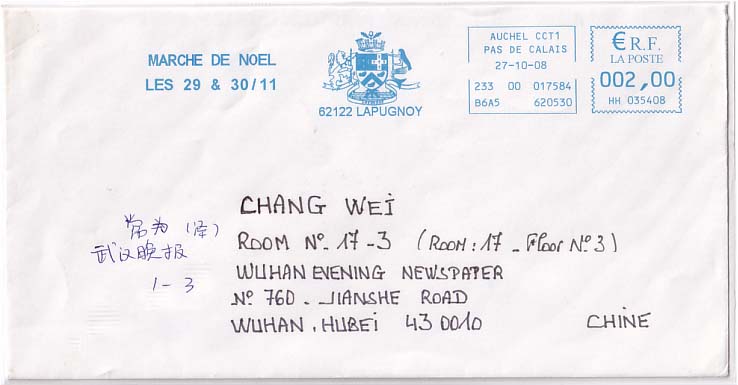 MARCHE DE NOEL
LES 29 & 30/11
62122 LAPUGNOY
AUCHEL CCT1
PAS DE CALAIS
27-10-08
233 00 017584
B6A5 620530
€ R.F.
LA POSTE
002,00
HH 035408
常为 (译)
武汉晚报
1-3
CHANG WEI
ROOM N° 17-3 (ROOM: 17 - Floor N° 3)
WUHAN EVENING NEWSPAPER
N° 760 - JIANSHE ROAD
WUHAN, HUBEI 430010
CHINE